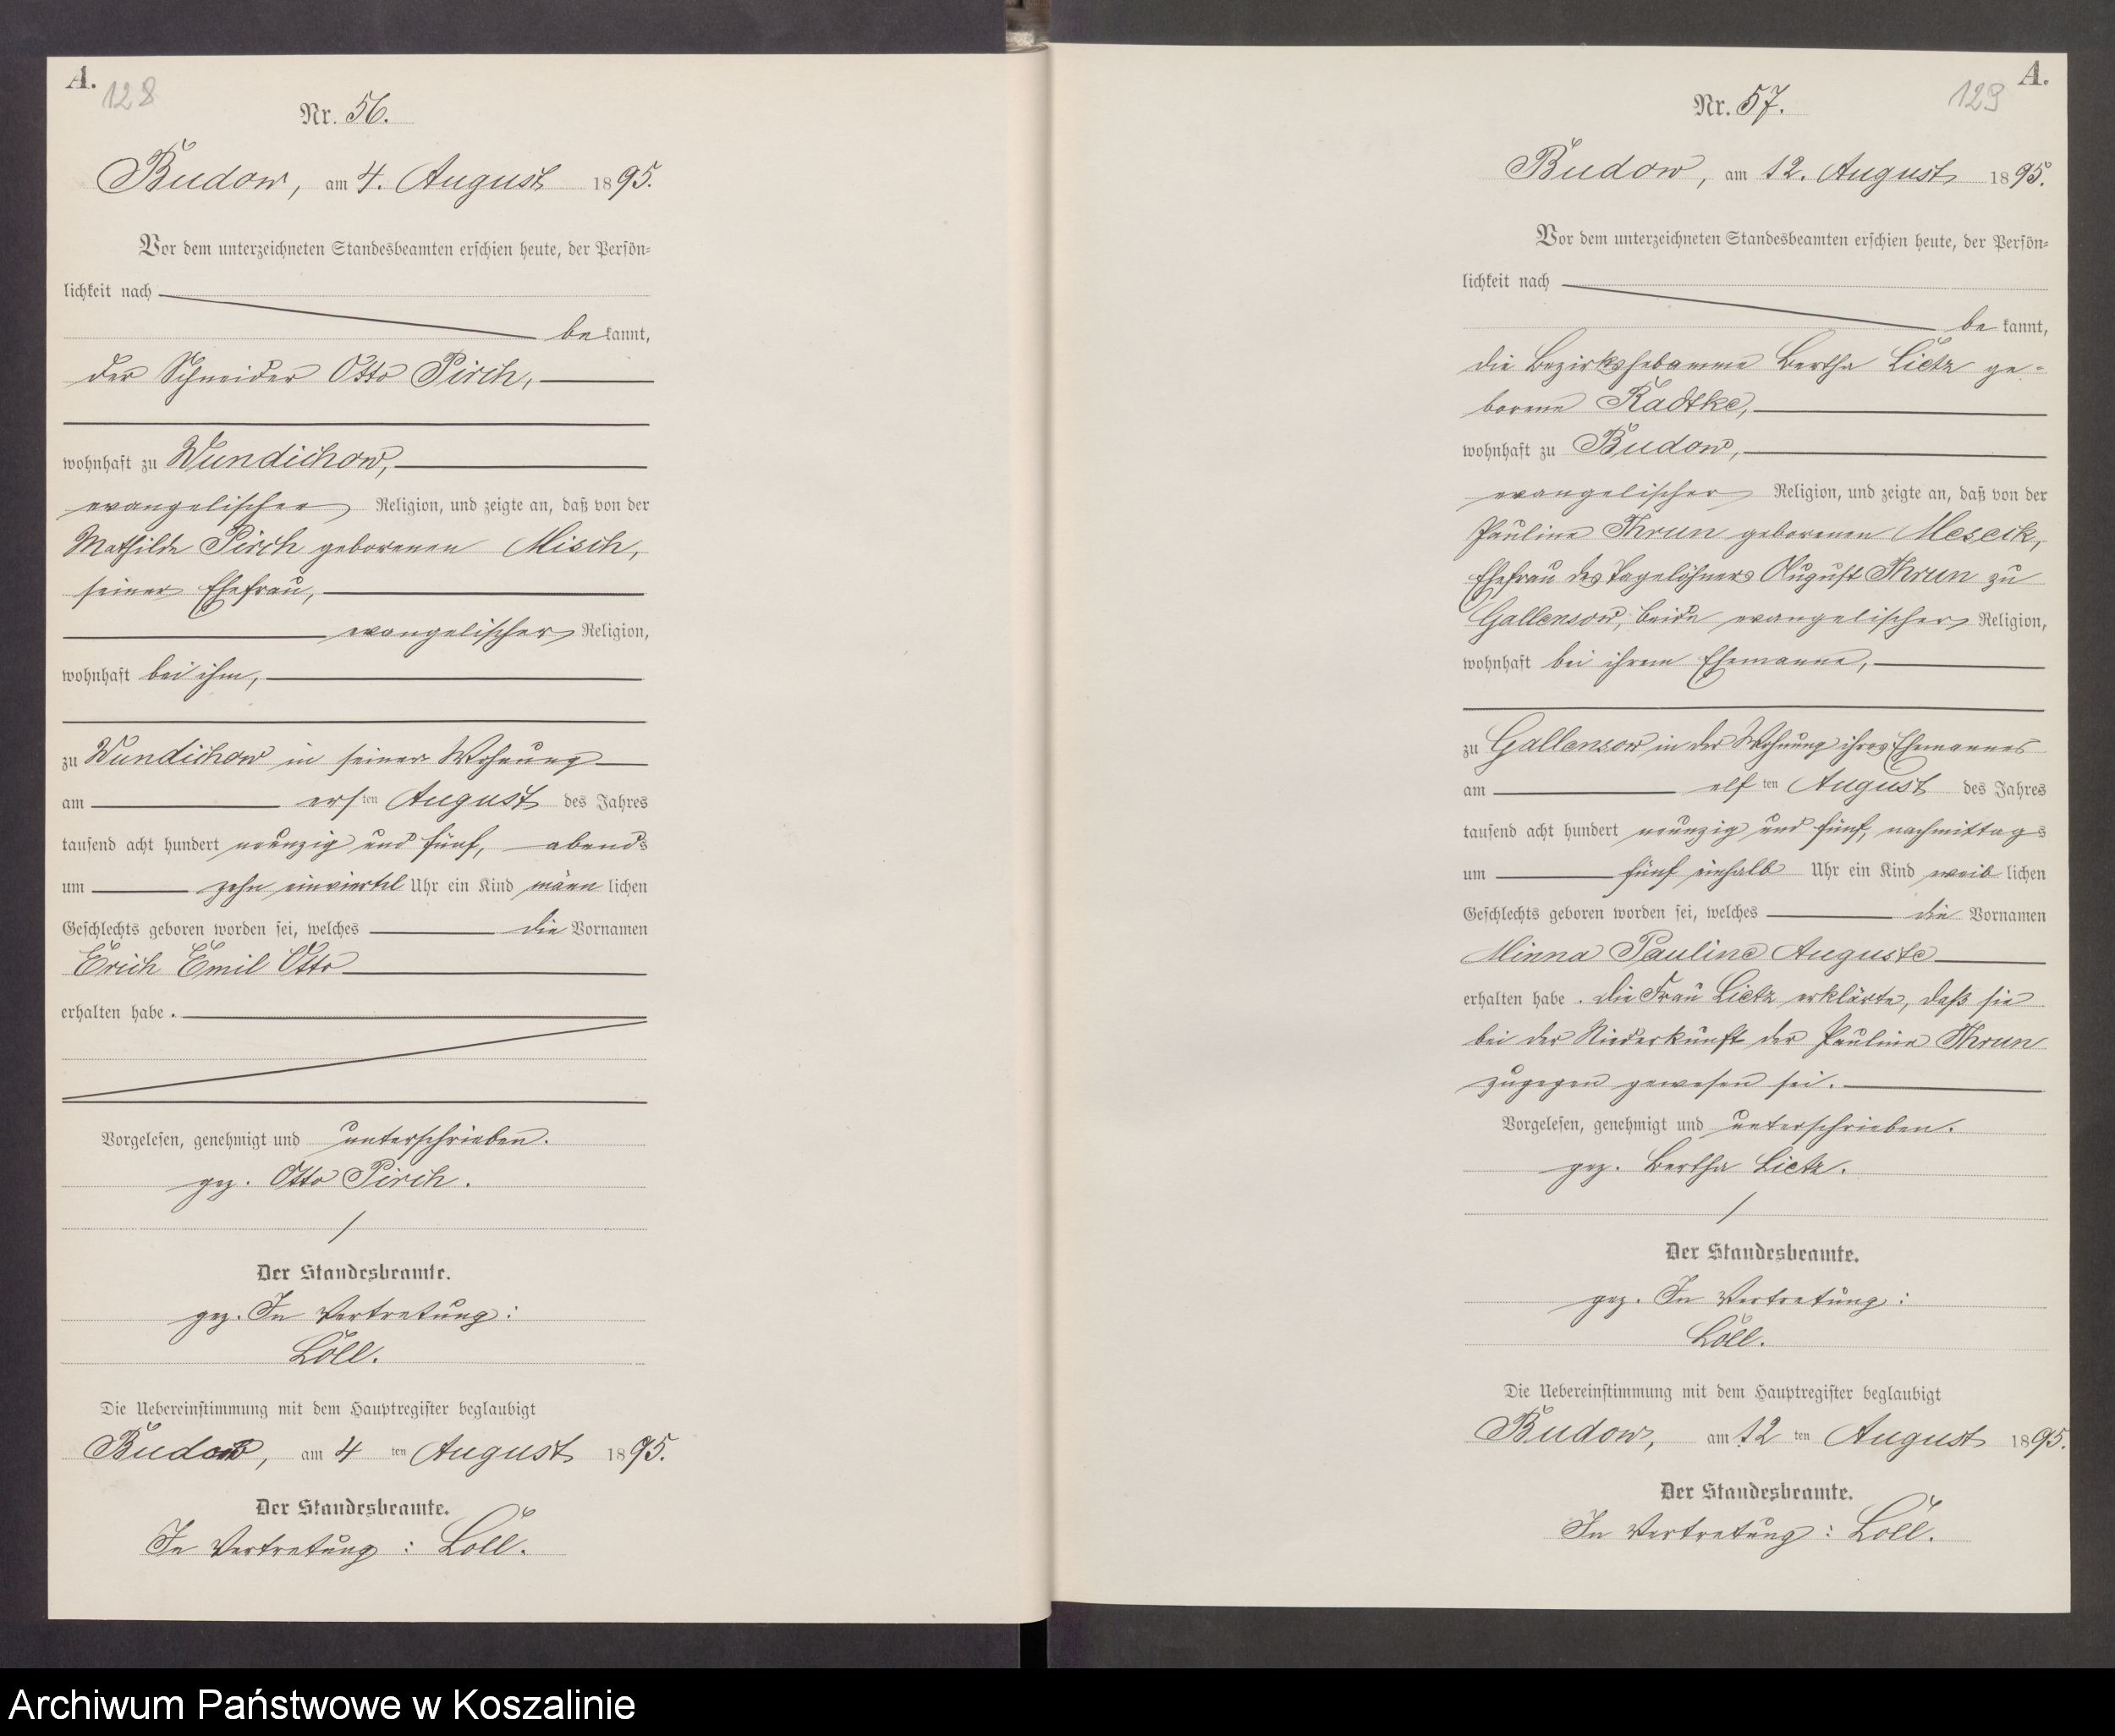 A.
128
Nr. 56.
Budow, am 4. August 1895.
Vor dem unterzeichneten Standesbeamten erschien heute, der Persön-
lichkeit nach
be kannt,
der Schneider Otto Pirch,
wohnhaft zu Wundichow,
evangelischer Religion, und zeigte an, daß von der
Mathilde Pirch geborenen Misch,
seiner Ehefrau,
evangelischer Religion,
wohnhaft bei ihm,
zu Wundichow in seiner Wohnung
am ersten August des Jahres
tausend acht hundert neunzig und fünf, abends
um zehn einviertel Uhr ein Kind männlichen
Geschlechts geboren worden sei, welches die Vornamen
Erich Emil Otto
erhalten habe.
Vorgelesen, genehmigt und unterschrieben.
gez. Otto Pirch.
Der Standesbeamte.
gez. In Vertretung:
Löll.
Die Uebereinstimmung mit dem Hauptregister beglaubigt
Budow, am 4ten August 1895.
Der Standesbeamte.
In Vertretung: Löll.
A.
129
Nr. 57.
Budow, am 12. August 1895.
Vor dem unterzeichneten Standesbeamten erschien heute, der Persön-
lichkeit nach
be kannt,
die Bezirkshebamme Bertha Lietz ge-
borene Radtke,
wohnhaft zu Budow,
evangelischer Religion, und zeigte an, daß von der
Pauline Thrun geborenen Meseck,
Ehefrau des Tagelöhners August Thrun zu
Gallensow, beide evangelischer Religion,
wohnhaft bei ihrem Ehemanne,
zu Gallensow in der Wohnung ihres Ehemannes
am elften August des Jahres
tausend acht hundert neunzig und fünf, nachmittags
um fünf einhalb Uhr ein Kind weiblichen
Geschlechts geboren worden sei, welches die Vornamen
Minna Pauline Auguste
erhalten habe. Die Frau Lietz erklärte, daß sie
bei der Niederkunft der Pauline Thrun
zugegen gewesen sei.
Vorgelesen, genehmigt und unterschrieben.
gez. Bertha Lietz.
Der Standesbeamte.
gez. In Vertretung:
Löll.
Die Uebereinstimmung mit dem Hauptregister beglaubigt
Budow, am 12ten August 1895.
Der Standesbeamte.
In Vertretung: Löll.
Archiwum Państwowe w Koszalinie